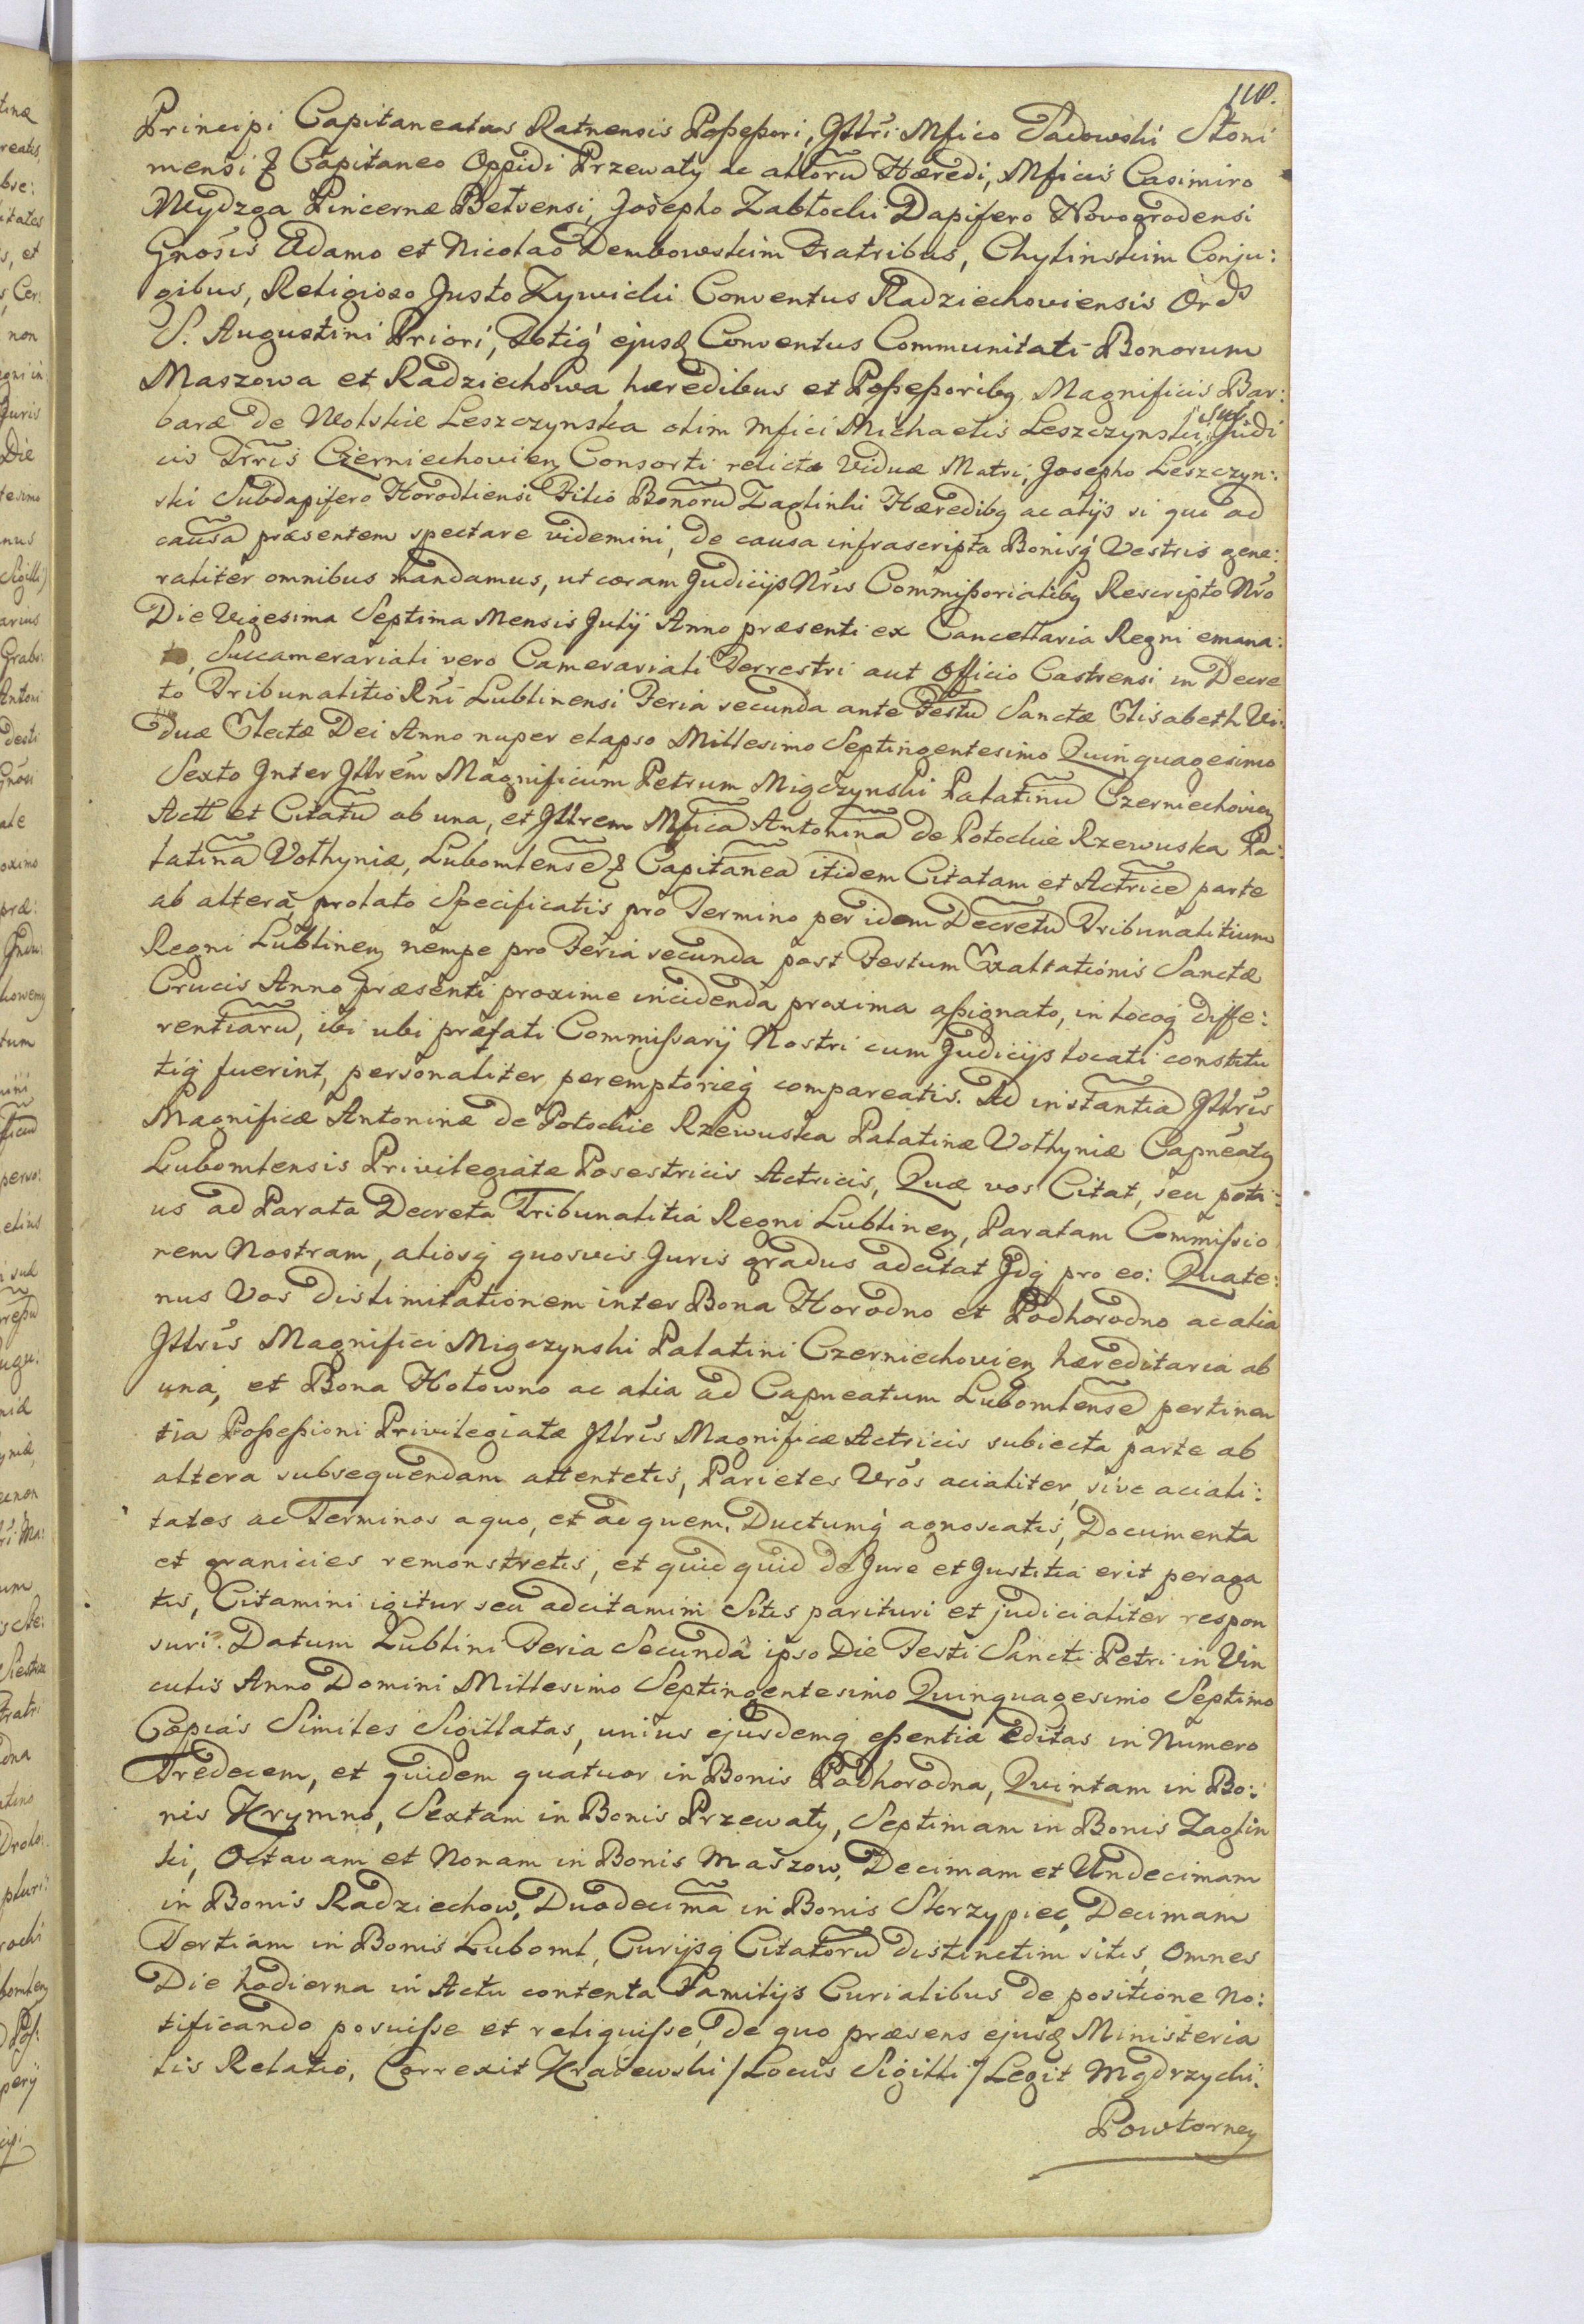 118.
Principi Capitaneatus Ratnensis Possessori, Jllri Mfico Sadowski Słoni
mensi & Capitaneo Oppidi Przewały ac alioru Hæredi, Mficis Casimiro
Wydzga Pincernæ Betzensi, Josepho Zabłocki Dapifero Novogrodensi
Gnosis Adamo et Nicolao Dembowskim Fratribus, Chylinskim Conju:
gibus, Religioso Justo Zywicki Conventus Radziechoviensis Ords
S. Augustini Priori, Totiq ejusq Conventus Communitati Bonorum
Maszowa et Radziechowa hæredibus et Possessoribg Magnificis Bar:
baræ de Wolskie Leszczynska olim Mfici Michaelis Leszczynski, Sub Judi
cis Trris Czerniechovien Consorti relictæ Viduæ Matri, Josepho Leszczyn:
ski Subdapifero Horodliensi Filio Bonoru Zaglinki Hæredibg ac alijs si qui ad
causa præsentem spectare videmini, de causa infrascripta Bonisq Vestris gene:
raliter omnibus mandamus, ut coram Judicijs Nris Commissorialibg Rescripto Nro
Die Vigesima Septima Mensis Julij Anno præsenti ex Cancellaria Regni emana:
to, Succamerariali vero Camerariali Terrestri aut Officio Castrensi in Decre
to Tribunalitio Rni Lublinensi Feria secunda ante Festu Sanctæ Elisabeth Vi:
duæ Electæ Dei Anno nuper elapso Millesimo Septingentesimo Quinquagesimo
Sexto Jnter Jllrem Magnificum Petrum Miączynski Palatinu Czerniechovien
Actt et Citatu ab una, et Jllrem Mfica Antonina de Potockie Rzewuska Pa:
latina Volhyniæ, Lubomlense & Capitanea itidem Citatam et Actrice parte
ab altera, prolato Specificatis pro Termino per idem Decretu Tribunalitium
Regni Lublinen nempe pro Feria secunda post Festum Exaltationis Sanctæ
Crucis Anno præsenti proxime incidenda proxima assignato, in locoq diffe:
rentiaru, ibi ubi præfati Commissarij Nostri cum Judicijs locati constitu
tiq fuerint, personaliter, peremptorieq compareatis. Ad instantia Jllris
Magnificæ Antoninæ de Potockie Rzewuska Palatinæ Volhyniæ Capneatg
Lubomlensis Privilegiatæ Posestricis Actricis, Quæ vos Citat, seu poti:
us ad Parata Decreta Tribunalitia Regni Lublinen, Paratam Commissio
nem Nostram, aliosq quosvis Juris gradus adcitat Jdq pro eo: Quate:
nus Vos dislimitationem inter Bona Horodno et Podhorodno ac alia
Jllris Magnifici Miączynski Palatini Czerniechovien hæreditaria ab
una, et Bona Hołowno ac alia ad Capneatum Lubomlense pertinen
tia Possessioni Privilegiatæ Jllris Magnificæ Actricis subiecta parte ab
altera subsequendam attentetis, Parietes Vros acialiter, sive aciali:
tates ac Terminos a quo, et ad quem, Ductumq agnoscatis, Documenta
et granicies remonstretis, et quid quid de Jure et Justitia erit peraga
tis, Citamini igitur seu adcitamini Sitis parituri et judicialiter respon
suri. Datum Lublini Feria Secunda ipso Die Festi Sancti Petri in Vin
culis Anno Domini Millesimo Septingentesimo Quinquagesimo Septimo
Copias Similes Sigillatas, unius ejusdemq essentiæ editas in Numero
Tredecem, et quidem quatuor in Bonis Podhorodna, Quintam in Bo:
nis Krymno, Sextam in Bonis Przewały, Septimam in Bonis Zaglin
ki, Octavam et Nonam in Bonis Maszow, Decimam et Undecimam
in Bonis Radziechow, Duodecima in Bonis Skrzypiec, Decimam
Tertiam in Bonis Luboml, Curijsq Citatoru distinctim sitis, Omnes
Die hodierna in Actu contenta Familijs Curialibus de positione No:
tificando posuisse et reliquisse, de quo præsens ejusq Ministeria
lis Relatio. Correxit Krajewski / Locus Sigilli / Legit Mędrzycki.
Powtorney